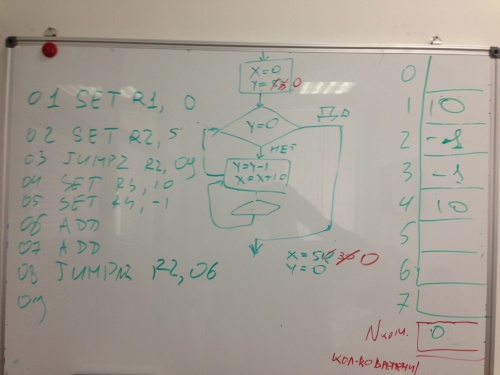 01 SET R1, 0
02 SET R2, 5
03 JUMPZ R2, 09
04 SET R3, 10
05 SET R4, -1
06 ADD
07 ADD
08 JUMPNZ R2, 06
09
X=0
Y=
0
Y=0
ДА
НЕТ
Y=Y-1
X=X+10
X=50
30 0
Y=0
0
1 10
2 -1
3 -1
4 10
5
6
7
Nком. 0
КОЛ-ВО ВРЕМЕНИ